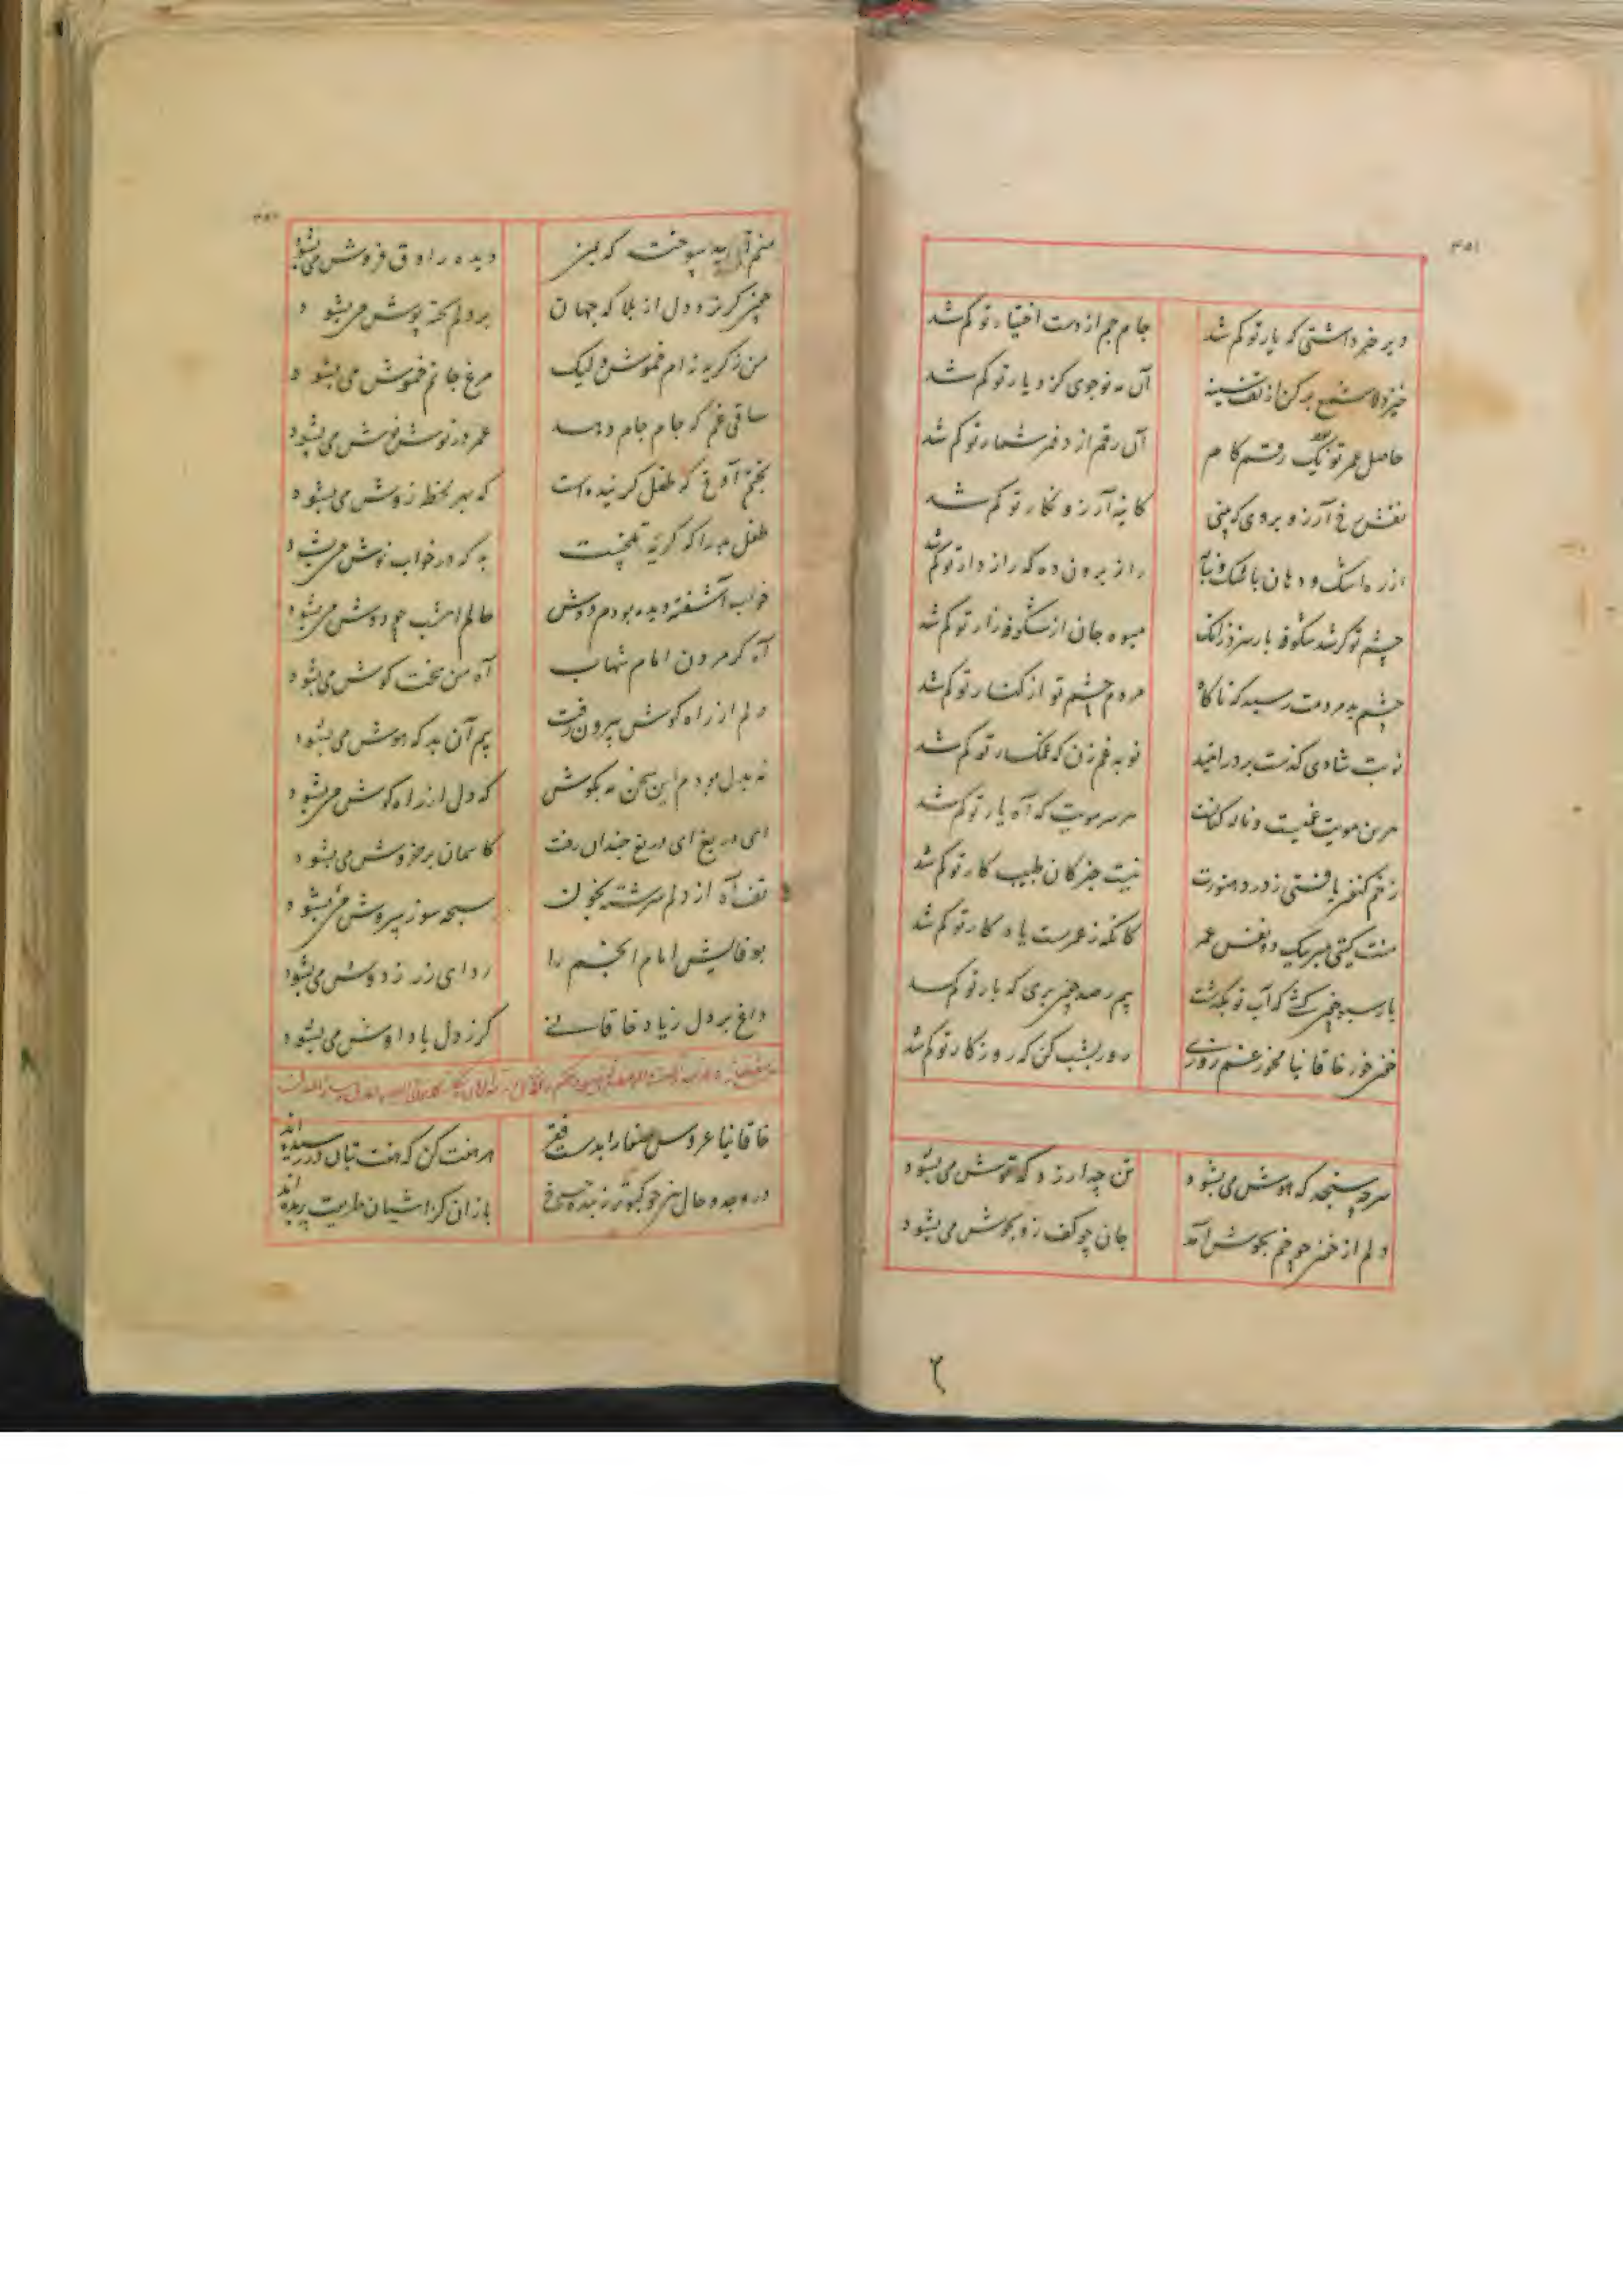 ۳۵۱
دیر خبر داشتی که یار تو کم شد جام جم از دست اختیار تو کم شد
خیز دلا شمع برکن از تف سینه آن مه نوجوی کز دیار تو کم شد
حاصل عمر تو بود یک رقم کام آن رقم از دفتر شمار تو کم شد
نقش رخ آرزو بروی که بینی کاینه آرزو نگار تو کم شد
از ره اشک و دهان باز برون ده که راز دار تو کم شد
چشم تو گر شد شکوفه بار سزد زانک میوه جان از شکوفه زار تو کم شد
چشم بد مردمت رسید که ناگاه مردم چشم تو از کنار تو کم شد
نوبت شادی گذشت بر در امید نوبه غم زن که غمگسار تو کم شد
هر بن مویت غمیست و ناله کنانست هر سر مویت که آه یار تو کم شد
زخم کنون یافتی ز درد هنوزت نیست خبر کان طبیب کار تو کم شد
منت گیتی مبر بیک دو نفس عمر کانکه ز عمرست یاد کار تو کم شد
بار سبو چون کشی که آب تو بگذشت بیم رصد چون بری که بار تو کم شد
خون خور خاقانیا مخور غم روزی روز بشب کن که روزگار تو کم شد
سر چه سنجد که هوش می بشود تن چه ارزد که توش می بشود
دلم از خون چو خم بجوش آمد جان چو کف زو بجوش می بشود
۲
منم آن بید سوخت که بمن دیده راوق فروش می بشود
خون گریزد دل از بلا که جهان بر دلم تخته پوش می بشود
من ز گریه نه ام خموش ولیک مرغ جانم خموش می بشود
ساقی غم که جام جام دهد عمر در نوش نوش می بشود
بختم آوخ که طفل گرینده است که بهر لحظه زوش می بشود
طفل بد را که گریه تلخست به که در خواب نوش می بشود
خواب آشفته دیده بودم دوش حالم امشب چو دوش می بشود
آه کز مردن امام شهاب آه من سخت کوش می بشود
دلم از راه گوش بیرون رفت بیم آن بد که هوش می بشود
نه بدل بودم این سخن نه بگوش که دل از راه گوش می بشود
ای دریغ ای دریغ چندان رفت کاسمان پر خروش می بشود
تف آه از دلم سرشته بخون سبحه سوز سروش می بشود
بوفاتش امام انجم را ردای زر ز دوش می بشود
داغ بر دل زیاد خاقانی گر ز دل یاد اوش می بشود
خاقانیا عروس صفا را بدست فقر هر هفت کن که هفت تنان در رسیده اند
در وجد و حال بین چو کبوتر زنند چرخ بازان کز آشیان طریقت پریده اند